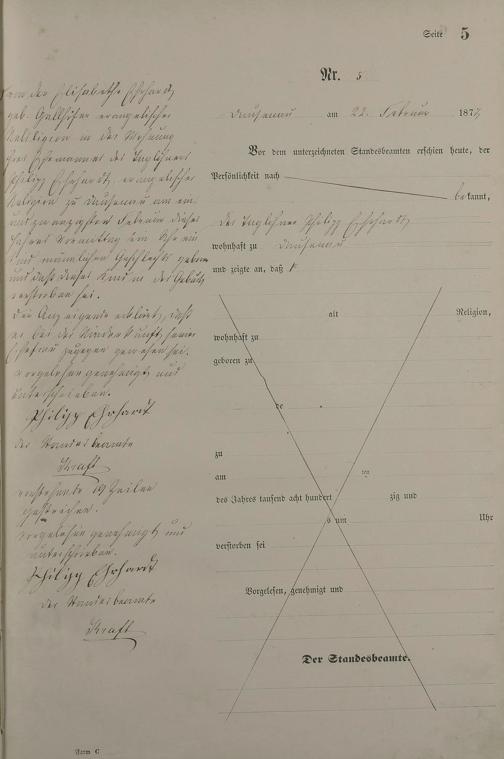 Seite 5
Nr. 5
Dausenau am 22. Februar 1877
Vor dem unterzeichneten Standesbeamten erschien heute, der
Persönlichkeit nach
bekannt,
der Taglöhner Philipp Ehrhardt
wohnhaft zu Dausenau
und zeigte an, daß
alt Religion,
wohnhaft zu
geboren zu
de
zu
am ten
des Jahres tausend acht hundert zig und
s um Uhr
verstorben sei
Vorgelesen, genehmigt und
Der Standesbeamte.
von der Elisabethe Ehrhardt
geb. evangelischer
Religion in der Wohnung
ihres Ehemannes des Taglöhners
Philipp Ehrhardt, evangelischer
Religion zu Dausenau am ein
und zwanzigsten Februar dieses
Jahres Vormittag um Uhr ein
Kind männlichen Geschlechts geboren
und daß dieses Kind in der Geburt
verstorben sei.
Der Anzeigende erklärt, daß
er bei der Niederkunft seiner
Ehefrau zugegen gewesen sei.
Vorgelesen genehmigt und
unterschrieben.
Philipp Ehrhardt
Der Standesbeamte
Kraft
Vorstehende 19 Zeilen
gestrichen.
Vorgelesen genehmigt und
unterschrieben.
Philipp Ehrhardt
Der Standesbeamte
Kraft
Form C